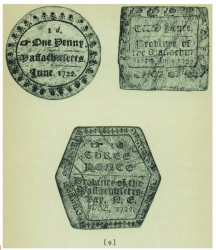 1 d.
One Penny
Massachusetts
June. 1722.
Pence.
Province of
June. 1722
THREE
PENCE
Province of the
Massachusetts
Bay. N. E.
1722.
[9]